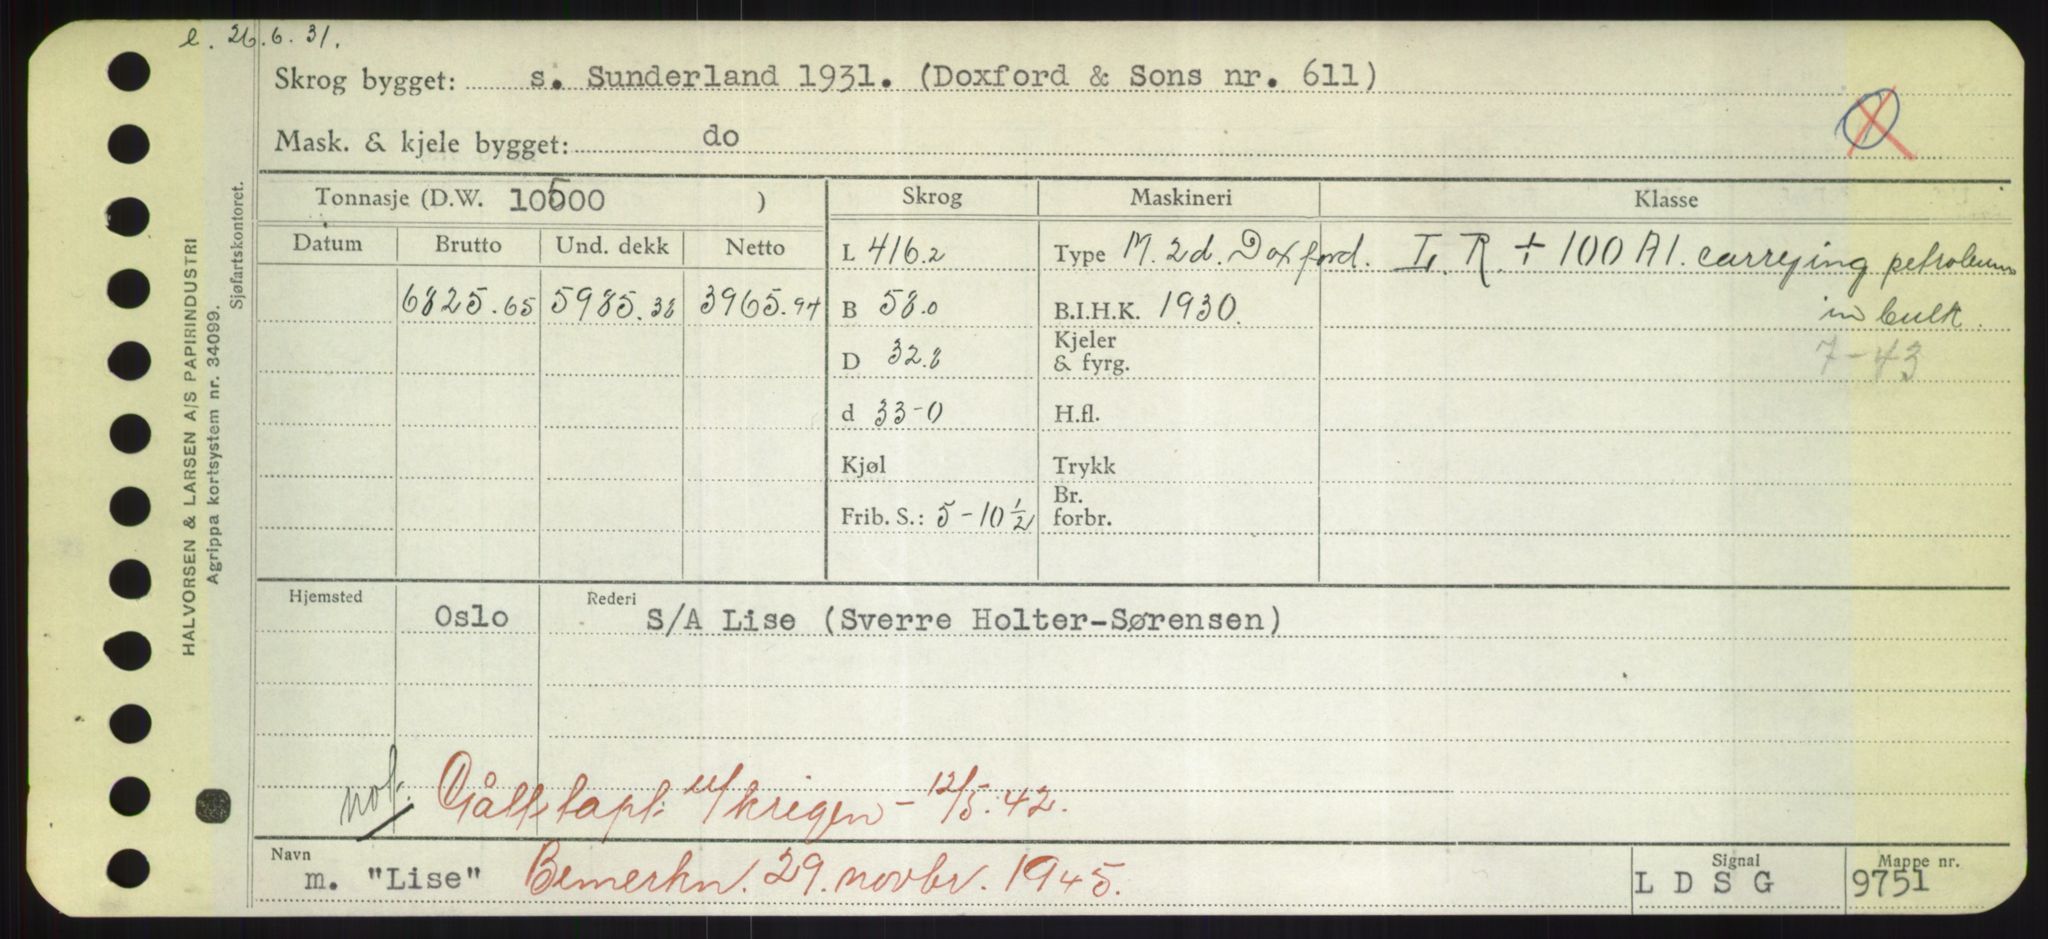 e. 26.6.31.
Skrog bygget: s. Sunderland 1931. (Doxford & Sons nr. 611)
Mask. & kjele bygget: do
HALVORSEN & LARSEN A/S PAPIRINDUSTRI
Agrippa kortsystem nr. 34099.
Sjøfartskontoret.
Tonnasje (D.W. 10500 ) Skrog Maskineri Klasse
Datum Brutto Und. dekk Netto L 416.2 Type M. 2d. Doxford. L. R. + 100 A1. carrying petroleum
6825.65 5985.38 3965.94 B 58.0 B.I.H.K. 1930. in bulk.
D 32.8 Kjeler & fyrg. 7-43
d 33-0 H.fl.
Kjøl Trykk
Frib. S.: 5-10 1/2 Br. forbr.
Hjemsted Oslo Rederi S/A Lise (Sverre Holter-Sørensen)
not. Gått tapt u/krigen - 12/5.42.
Navn m. "Lise" Bemerkn. 29. novbr. 1945. Signal L D S G Mappe nr. 9751